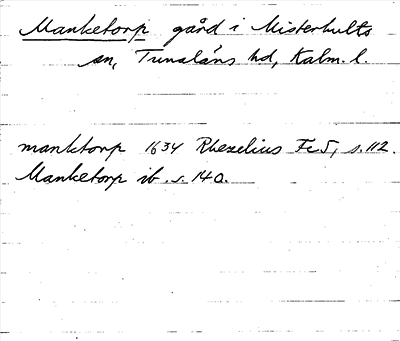 Manketorp gård i Misterhults
sn, Tunaläns hd, Kalm. l.
manktorp 1634 Rhezelius Fc5, s. 112.
Manketorp ib. s. 140.